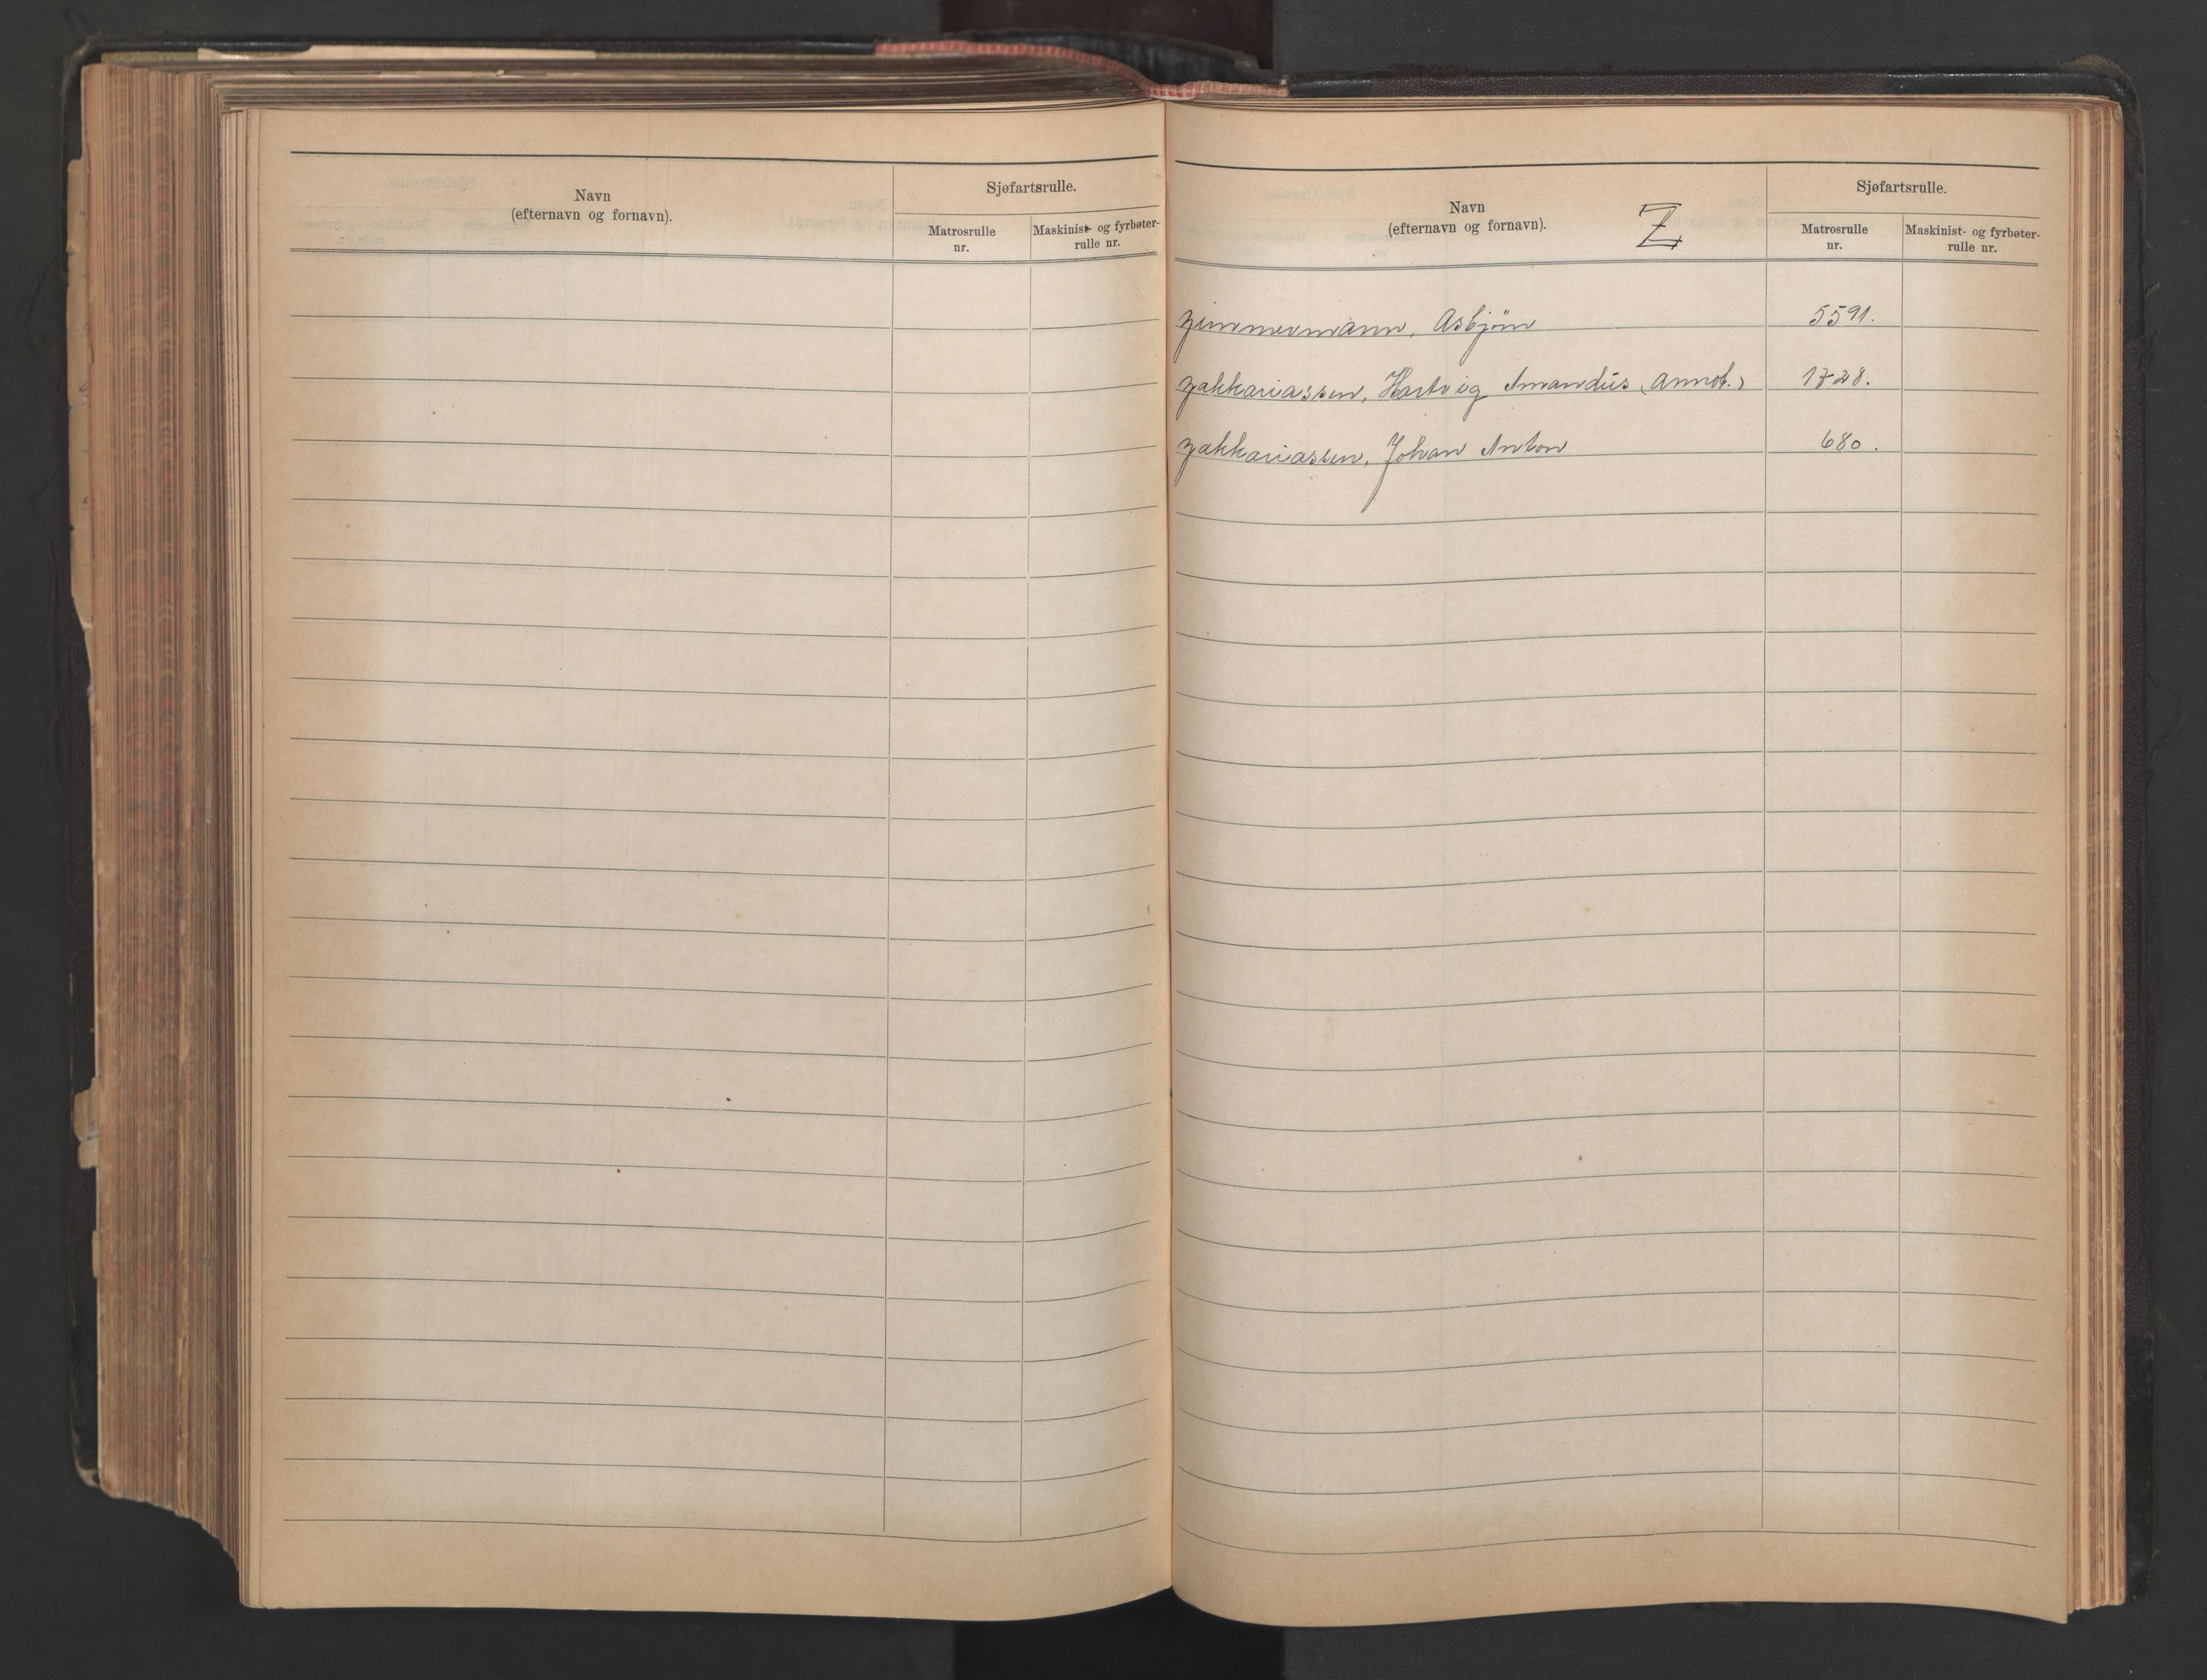 Navn
(efternavn og fornavn).
Sjøfartsrulle.
Matrosrulle
nr.
Maskinist- og fyrbøter-
rulle nr.
Navn
(efternavn og fornavn).
Z
Sjøfartsrulle.
Matrosrulle
nr.
Maskinist- og fyrbøter-
rulle nr.
Zimmermann, Asbjörn 5591.
Zakkariassen, Hartvig Amandus (Annot.) 1728.
Zakkariassen, Johan Anton 680.